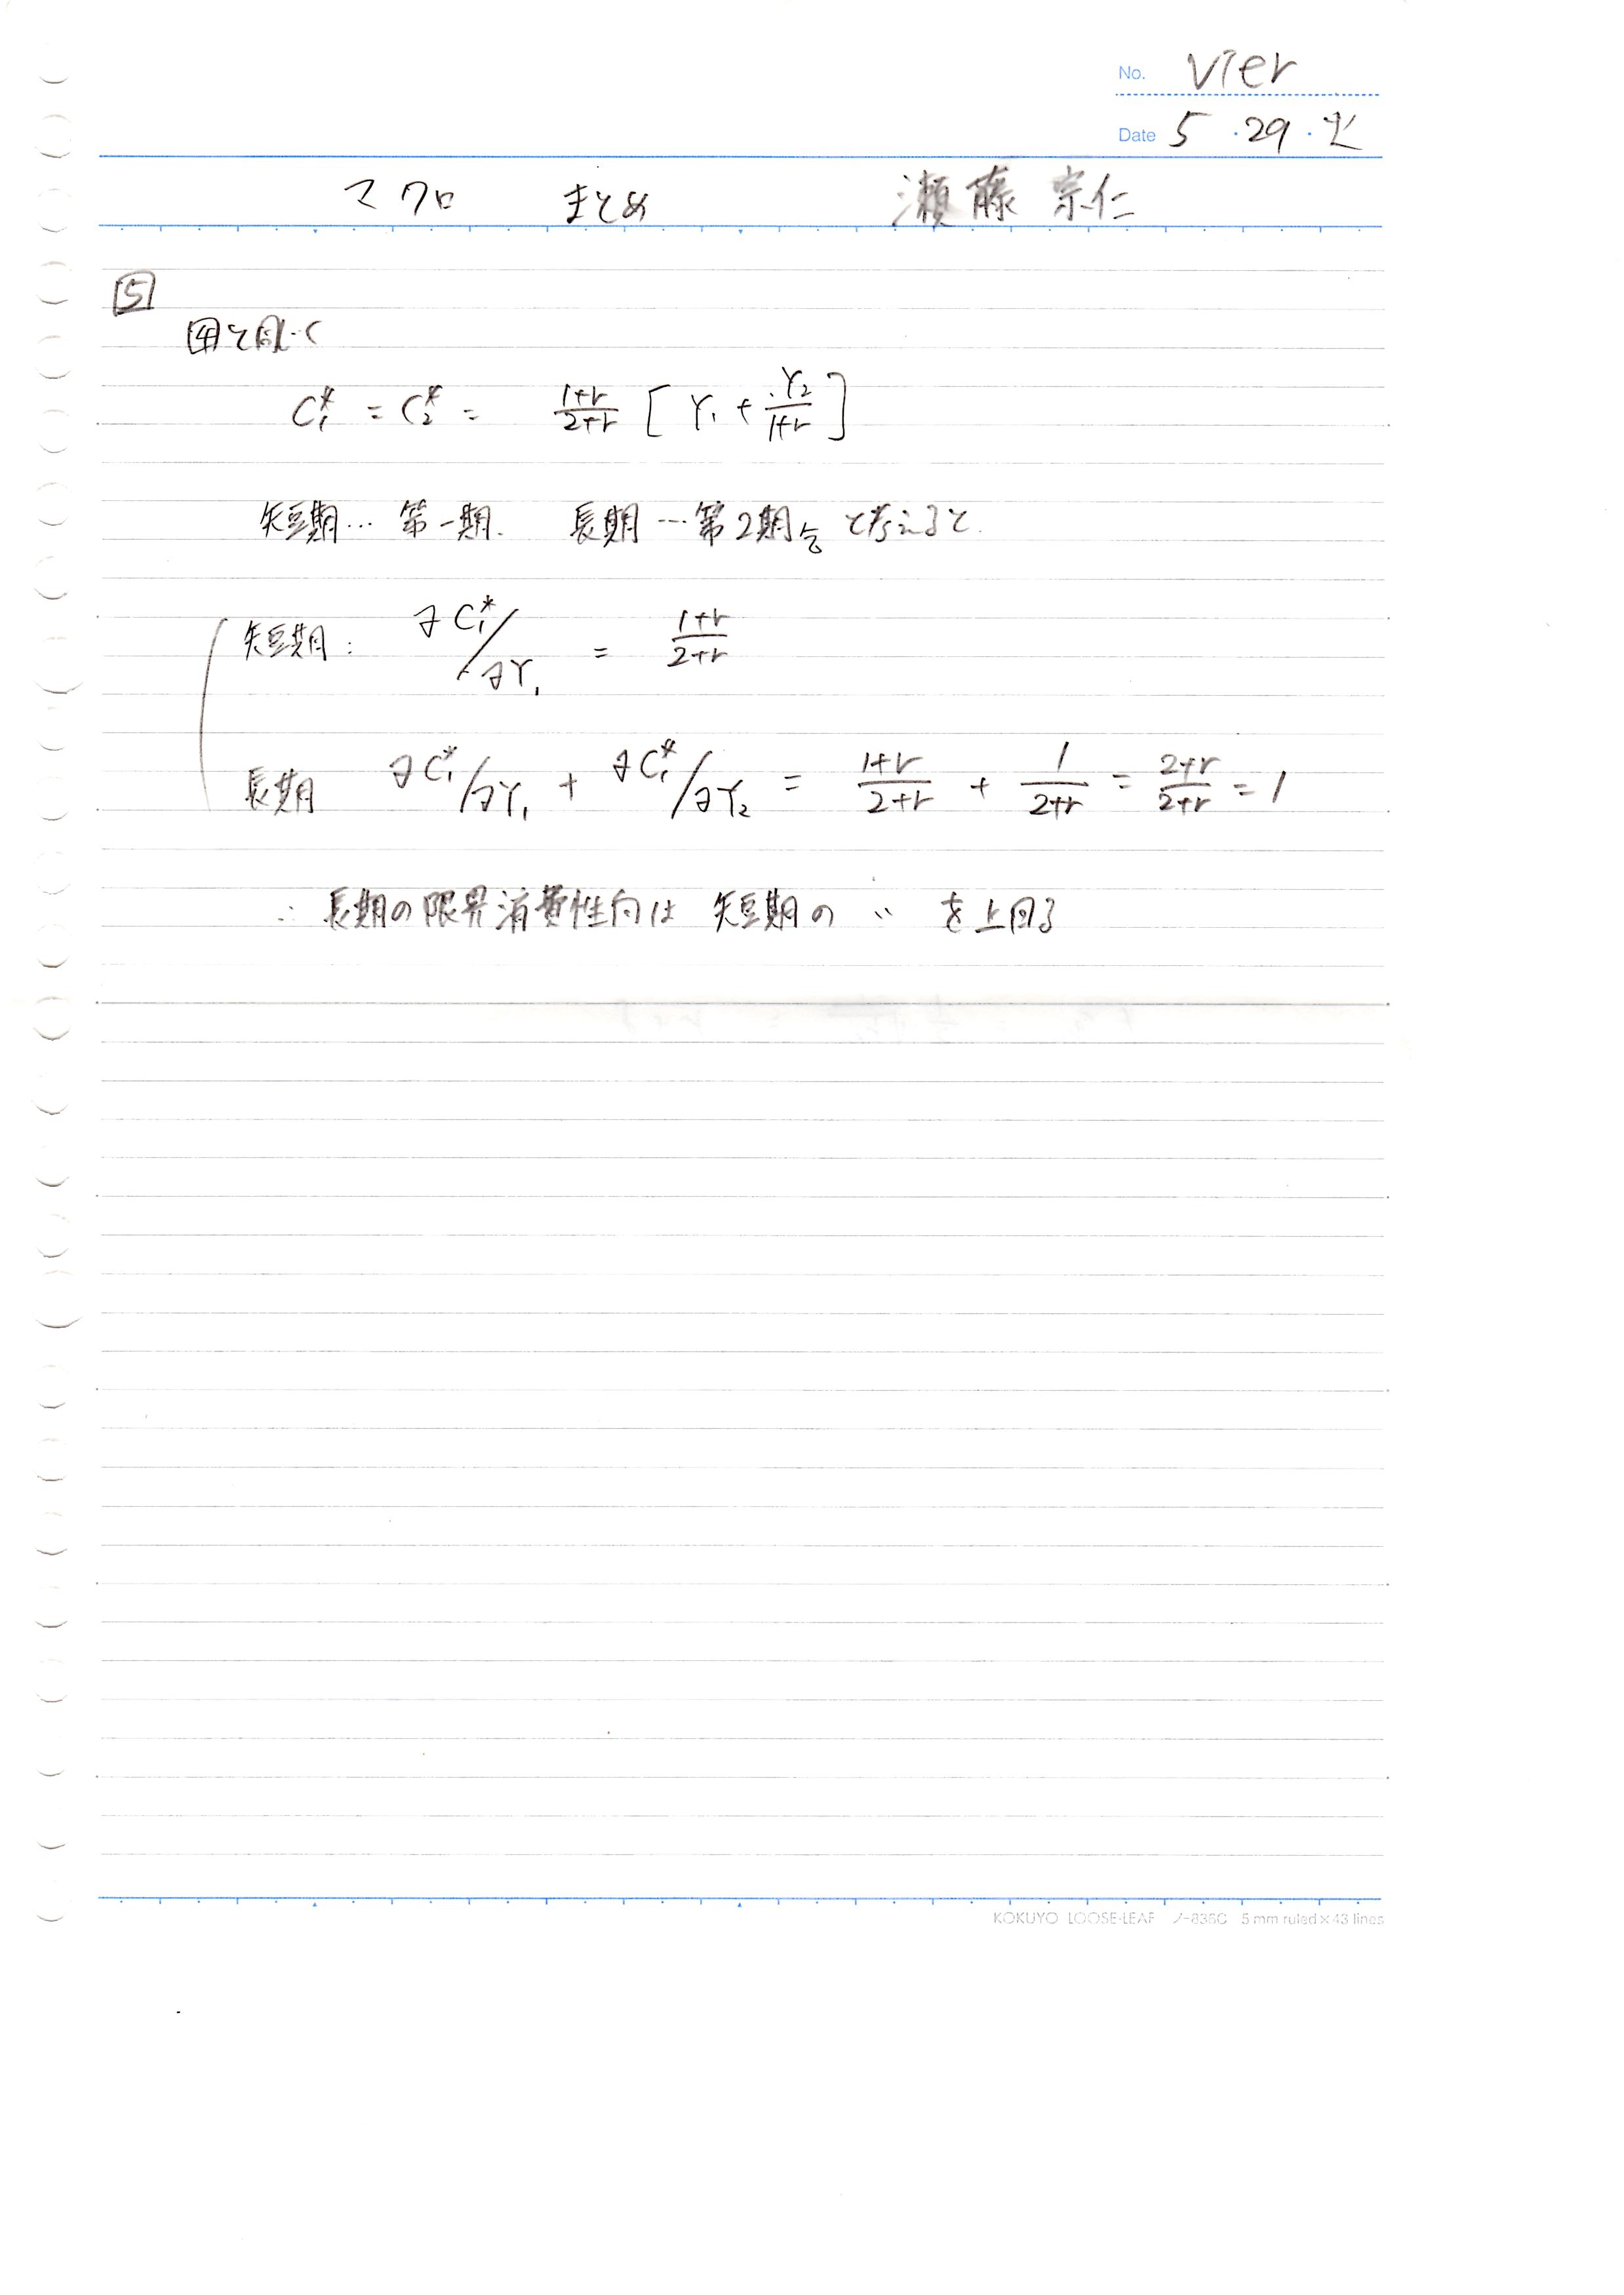 No. Vier
Date 5・29・火
マクロ まとめ 瀬藤 宗仁
5
4と同じく
C₁* = C₂* = (1+r)/(2+r) [Y₁ + Y₂/(1+r)]
短期… 第一期. 長期…第2期 と考えると.
短期: ∂C₁*/∂Y₁ = (1+r)/(2+r)
長期 ∂C₁*/∂Y₁ + ∂C₁*/∂Y₂ = (1+r)/(2+r) + 1/(2+r) = (2+r)/(2+r) = 1
∴ 長期の限界消費性向は 短期の 〃 を上回る
KOKUYO LOOSE-LEAF ノ-836C 5 mm ruled×43 lines